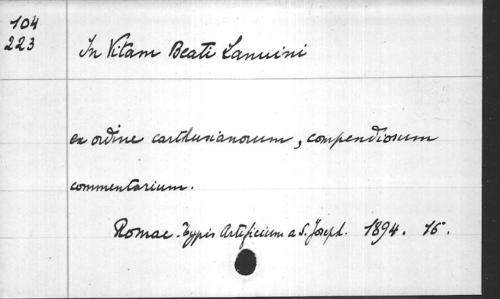 104
223
In Vitam Beati Lanuini
ex ordine carthusianorum, compendiosum
commentarium.
Romae. typis Artificum a S. Joseph. 1894. 16.